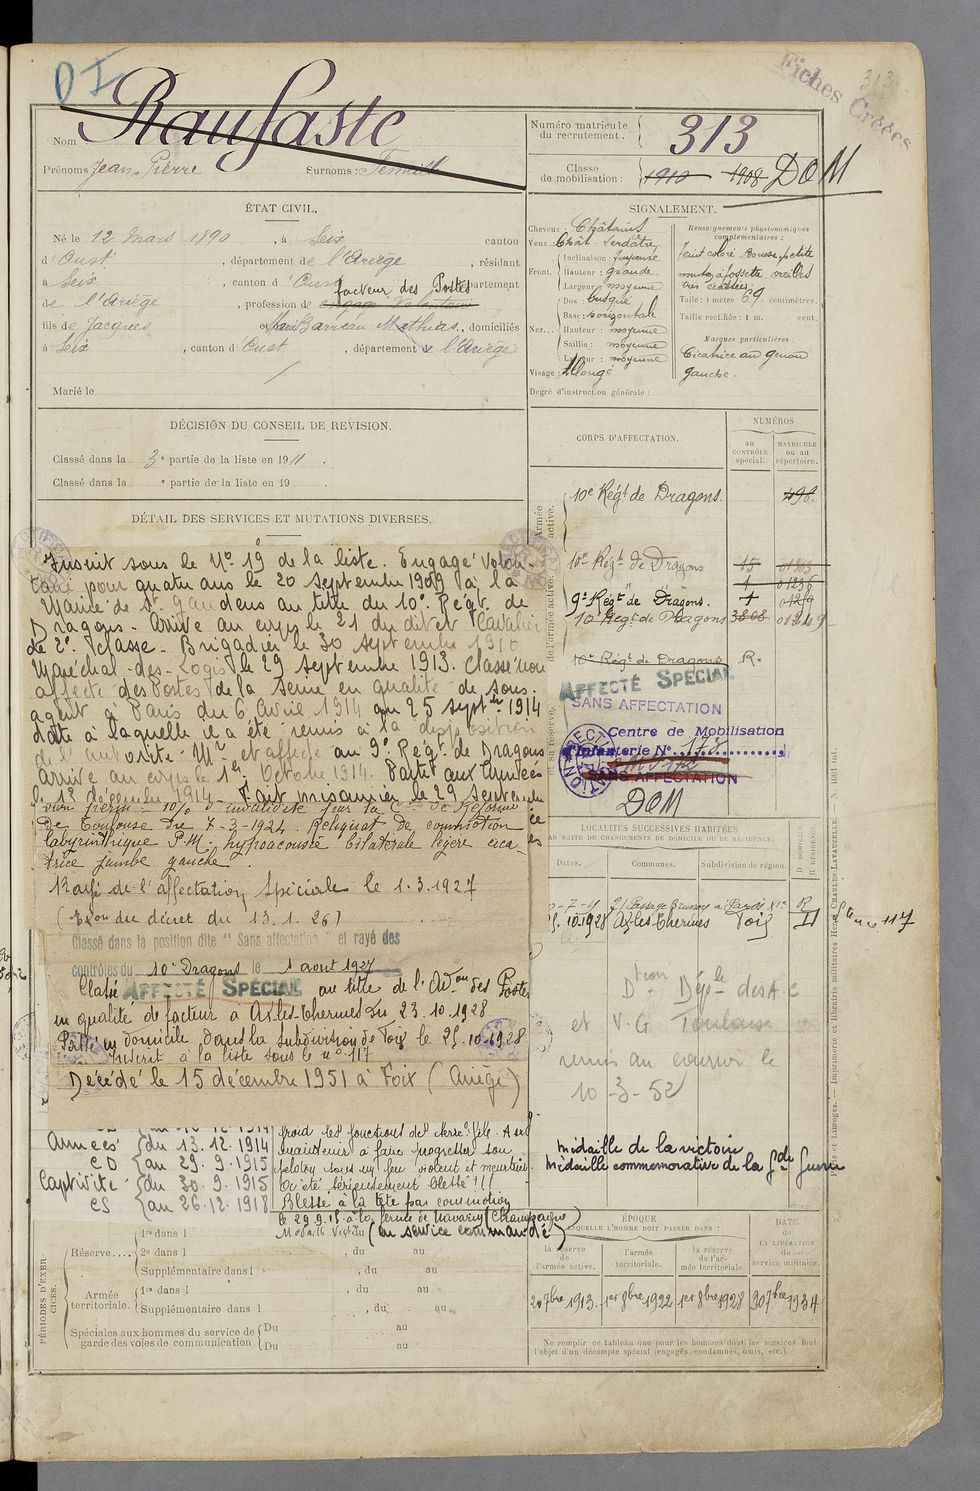 D I
Fiches Créées
313
Nom Raufaste
Prénoms Jean-Pierre Surnoms :
Numéro matricule du recrutement. 313
Classe de mobilisation : 1910 1908 DOM
ÉTAT CIVIL.
Né le 12 Mars 1890, à Seix canton
d'Oust, département de l'Ariège, résidant
à Seix, canton d'Oust, département
facteur des Postes
de l'Ariège, profession de engagé volontaire
fils de Jacques et de Barreau Mathias, domiciliés
à Seix, canton d'Oust, département de l'Ariège
Marié le
SIGNALEMENT.
Cheveux Châtains
Yeux Chât. verdâtre
Front. Inclinaison : fuyante
Hauteur : grande
Largeur : moyenne
Nez... Dos : busqué
Base : horizontale
Hauteur : moyenne
Saillie : moyenne
Largeur : moyenne
Visage : allongé
Renseignements physionomiques complémentaires :
Teint coloré petite
à fossette oreilles
très écartées
Taille : 1 mètre 69 centimètres.
Taille rectifiée : 1 m. cent.
Marques particulières :
Cicatrice au genou
gauche.
Degré d'instruction générale :
DÉCISION DU CONSEIL DE REVISION.
Classé dans la 3e partie de la liste en 1911.
Classé dans la e partie de la liste en 19 .
DÉTAIL DES SERVICES ET MUTATIONS DIVERSES.
Inscrit sous le No 19 de la liste. Engagé volon-
taire pour quatre ans le 20 septembre 1909 à la
Mairie de St Gaudens au titre du 10e Régt de
Dragons. Arrivé au corps le 21 du dit et Cavalier
de 2e classe. Brigadier le 30 septembre 1910
Maréchal-des-Logis le 29 septembre 1913. Classé non
affecté des Postes de la Seine en qualité de sous-
agent à Paris du 6 Avril 1914 au 25 septbre 1914
date à laquelle il a été remis à la disposition
de l'autorité Mre et affecté au 9e Régt de Dragons
arrivé au corps le 1er Octobre 1914. Parti aux Armées
le 13 décembre 1914. Fait prisonnier le 29 septembre
10% d'invalidité sur la de Réforme
de Toulouse du 7-3-1924. Reliquat de commotion
labyrinthique P.M. hypoacousie bilatérale légère cica-
trice jambe gauche.
Rayé de l'affectation spéciale le 1.3.1927
(Exon du décret du 13.1.26)
Classé dans la position dite "Sans affectation" et rayé des
contrôles du 10e Dragons le 1 août 1927
Classé AFFECTÉ SPÉCIAL au titre de l'Adon des Postes
en qualité de facteur à Ax-les-Thermes du 23.10.1928
Passé en domicile dans la subdivision de Foix le 25.10.1928
Inscrit à la liste sous le no 117
Décédé le 15 décembre 1951 à Foix (Ariège)
Armées du 13.12.1914
CD au 29.9.1915
Captivité du 30.9.1915
CS au 26.12.1918
froid les fonctions de
maintenir à faire progresser son
peloton sous un feu violent et meurtrier.
a été sérieusement blessé !!!
Blessé à la tête par commotion
le 29.9.15 à la ferme de Navarin (Champagne)
(en service commandé)
CORPS D'AFFECTATION.
NUMÉROS
au contrôle spécial.
MATRICULE ou au répertoire.
Armée active.
10e Régt de Dragons. 498
10e Régt de Dragons 15
1 01286
9e Régt de Dragons. 1
10e Régt de Dragons 3808
10e Régt de Dragons R.
AFFECTÉ SPÉCIAL
SANS AFFECTATION
Centre de Mobilisation
Infanterie No 173
SANS AFFECTATION
DOM
LOCALITÉS SUCCESSIVES HABITÉES
PAR SUITE DE CHANGEMENTS DE DOMICILE OU DE RÉSIDENCE.
Dates. Communes. Subdivision de région. D DOMICILE. R RÉSIDENCE.
25.10.1928 Ax-les-Thermes Foix D 117
Dtion Déple des A.C
et V.G Toulouse
remis au courrier le
10-3-52
Médaille de la victoire
Médaille commémorative de la Gde Guerre
PÉRIODES D'EXERCICES.
Réserve....
1re dans l , du au
2e dans l , du au
Supplémentaire dans l , du au
Armée territoriale.
1re dans l , du au
Supplémentaire dans l , du au
Spéciales aux hommes du service de garde des voies de communication
Du au
Du au
ÉPOQUE
À LAQUELLE L'HOMME DOIT PASSER DANS :
la réserve de l'armée active.
l'armée territoriale.
la réserve de l'armée territoriale
DATE de LA LIBÉRATION du service militaire.
20 7bre 1913. 1er 8bre 1922 1er 8bre 1928 30 7bre 1934
Ne remplir ce tableau que pour les hommes dont les services font
l'objet d'un décompte spécial (engagés, condamnés, omis, etc.).
Paris et Limoges. — Imprimerie et librairie militaires Henri CHARLES-LAVAUZELLE.